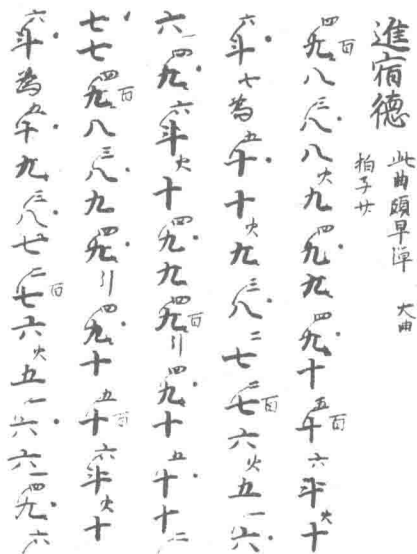 進宿德 此曲頗早彈 大曲
拍子廿
四九百八三八八火九四九九四九十五十百六斗火十
六斗七為五十十火九三八二七二七百六火五一六
六一四九六斗火十四九九四九百引四九十五十十二
七七四九百八三八九四九引四九十五十百六斗火十
六斗為五十九三八七二七百六火五一六六一四九六